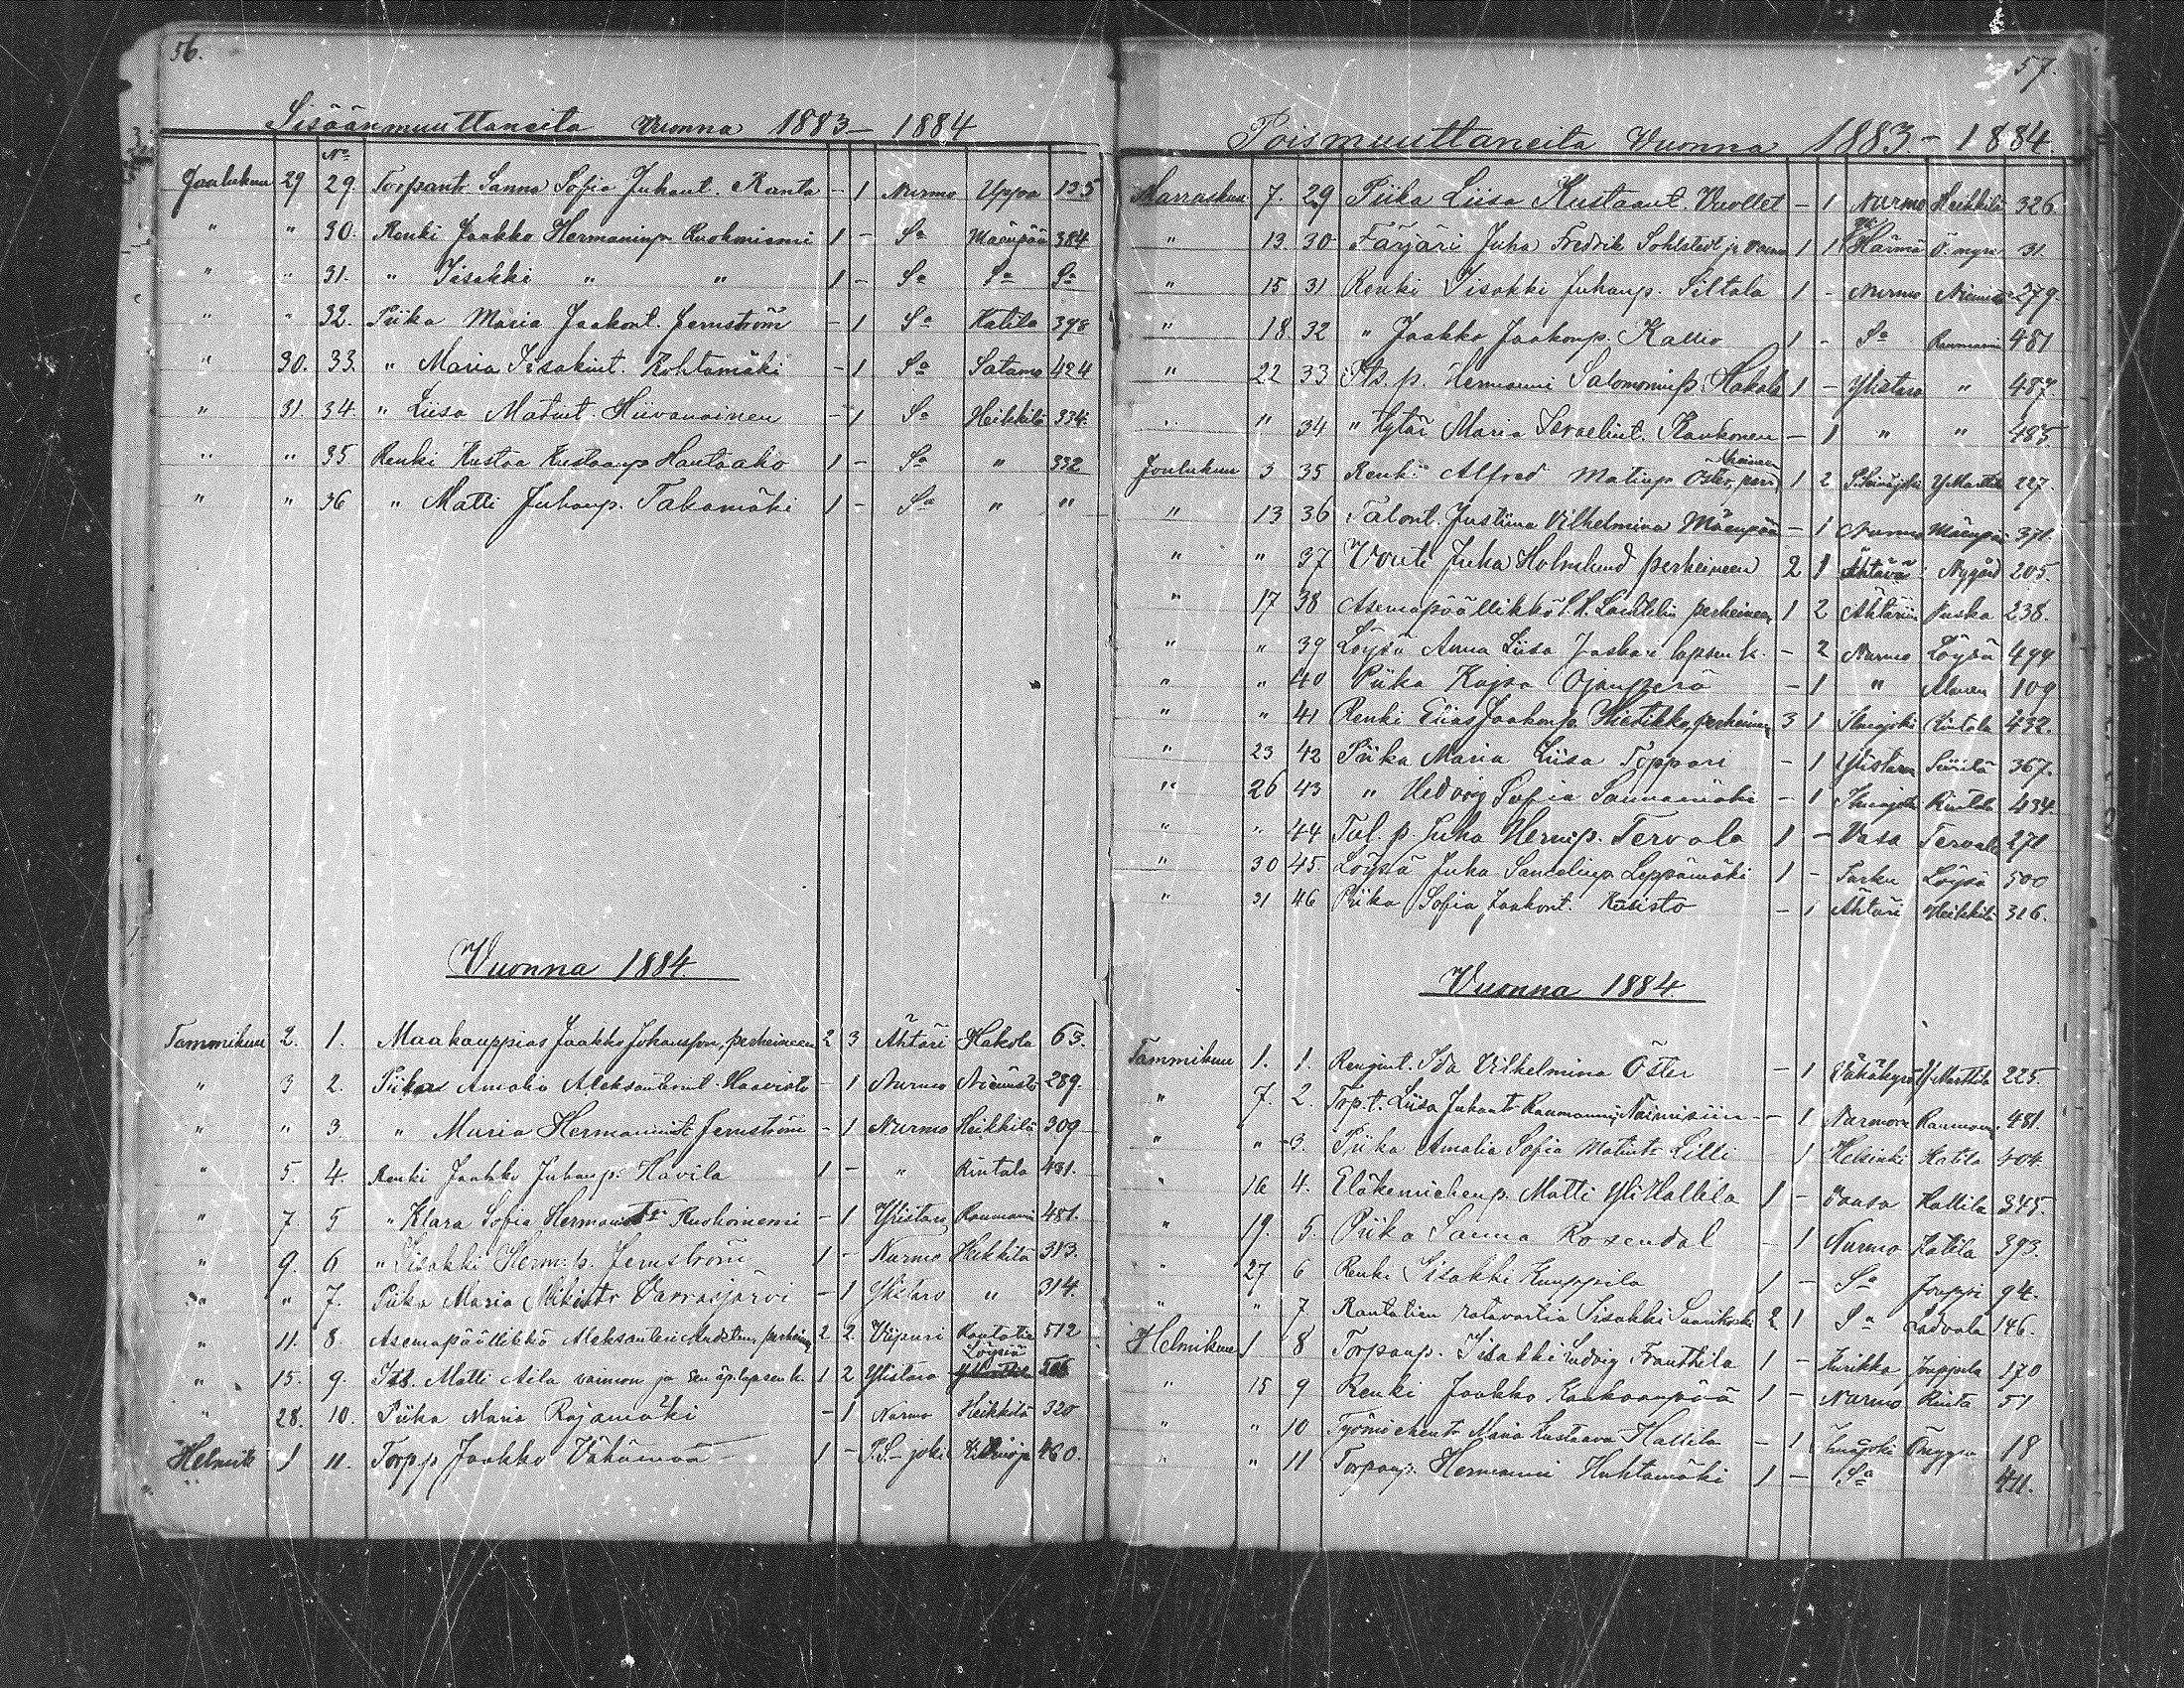 56.
Sisäänmuuttaneita Vuonna 1883 – 1884
No
Joulukuu 29 29. Torpantr Sanna Sofia Juhant. Ranta – 1 Nurmo Uppa 135
" " 30. Renki Jaakko Hermaninp. Ruohoniemi 1 – Sa Mäenpää 384
" " 31. " Iisakki " " 1 – Sa Sa Sa
" " 32. Piika Maria Jaakont. Jernström – 1 Sa Katila 398
" 30. 33. " Maria Iisakint. Kohtamäki – 1 Sa Satamo 424
" 31 34. " Liisa Matint. Hiivanainen – 1 Sa Heikkilä 334.
" " 35 Renki Kustaa Kustaanp Hautaaho 1 – Sa " 332
" " 36 " Matti Juhanp. Takamäki 1 – Sa " "
Vuonna 1884.
Tammikuu 2. 1. Maakauppias Jaakko Johansson, perheineen 2 3 Ähtäri Hakola 63.
" 3 2. Piika Amalia Aleksanterint. Haavisto – 1 Nurmo Niemistö 289.
" " 3. " Maria Hermannint Jernström – 1 Nurmo Heikkilä 309
" 5. 4. Renki Jaakko Juhanp. Havila 1 – " Rintala 431.
" 7. 5 " Klara Sofia Hermanntr Ruohoniemi – 1 Ylistaro Raumanni 481.
" 9. 6 " Iisakki Herm.p. Jernström 1 – Nurmo Heikkilä 313.
" " 7. Piika Maria Mikintr Varrasjärvi – 1 Ylistaro " 314.
" 11. 8. Asemapäällikkö Aleksanteri perheineen 2 2 Viipuri Rautatie 512
Löysiä
" 15. 9. Its. Matti Aila vaimon ja lapsen k. 1 2 Ylistaro
" 28. 10. Piika Maria Rajamäki – 1 Nurmo Heikkilä 320
Helmik 1 11. Torp.p Jaakko Vähämaa 1 – P.S–joki 460.
57.
Poismuuttaneita Vuonna 1883. – 1884.
Marraskuu 7. 29 Piika Liisa Kustaant. Vuollet – 1 Nurmo Heikkilä 326.
" 13. 30 Färjäri Juha Fredrik Sohlstedt ja vaimo 1 1 Härmä Ö.myra 31.
" 15 31 Renki Iisakki Juhanp. Siltala 1 – Nurmo Niemistö 279.
" 18. 32 " Jaakko Jaakonp. Kallio 1 – Sa Raumanni 481
" 22 33 Its. p. Hermanni Salomoninp. Hakola 1 – Ylistaro " 487.
" " 34 " tytär Maria Israelint. Kaukonen – 1 " " 485
Joulukuu 3 35 Renki Alfred Matinp Öster, perheineen 1 2 P.Seinäjoki Y.Marttila 227.
" 13 36 Talont. Justiina Vilhelmina Mäenpää – 1 Nurmo Mäenpää 371.
" " 37 Vouti Juha Holmlund perheineen 2 1 Ähtävä Nygård 205.
" 17 38 Asemapäällikkö perheineen 1 2 Ähtäriin Puska 238.
" " 39 Löysä Anna Liisa Jaskari lapsen k. – 2 Nurmo Löysä 499
" " 40 Piika Kajsa Ojanperä – 1 " Alanen 109
" " 41 Renki Elias Jaakonp. Hietikko, perheineen 3 1 Ilmajoki Rintala 432.
" 23 42 Piika Maria Liisa Toppari – 1 Ylistaro Siirilä 367.
" 26 43 " Hedvig Sofia Saunamäki – 1 Ilmajoki Rintala 434.
" " 44 Tal. p. Juha Herm.p. Tervola 1 – Vasa Tervola 271
" 30 45. Löysä Juha Samelinp Leppämäki 1 – Turku Löysä 500
" 31 46 Piika Sofia Jaakont. Kuusisto – 1 Ähtäri Heikkilä 316.
Vuonna 1884.
Tammikuu 1. 1. Rengint. Ida Vilhelmina Öster – 1 Vähäkyrö Y.Marttila 225.
" 7. 2. Torp.t. Liisa Juhantr Raumanni, Naimisiin – 1 Nurmoon Raumanni 481.
" " 3. Piika Amalia Sofia Matintr Lilli 1 Helsinki Katila 404.
" 16 4. Eläkemiehenp. Matti Yli Hallila 1 – Vaasa Hallila 345.
" 19. 5. Piika Sanna Rosendal – 1 Nurmo Katila 393.
" 27 6 Renki Iisakki Kamppila 1 – Sa Jouppi 94.
" " 7 Rautatien ratavartia Iisakki Saarikoski 2 1 Sa Ladvala 146.
Helmikuu 1 8 Torpanp. Iisakki Ludvig Franttila 1 – Kurikka Jouppila 170
" 15 9 Renki Jaakko Kankaanpää 1 – Nurmo Rinta 51
" " 10 Työmiehentr Maria Kustaava Hallila – 1 Ilmajoki Önnypa 18
" " 11 Torpanp. Hermanni Huhtamäki 1 – Sa 411.